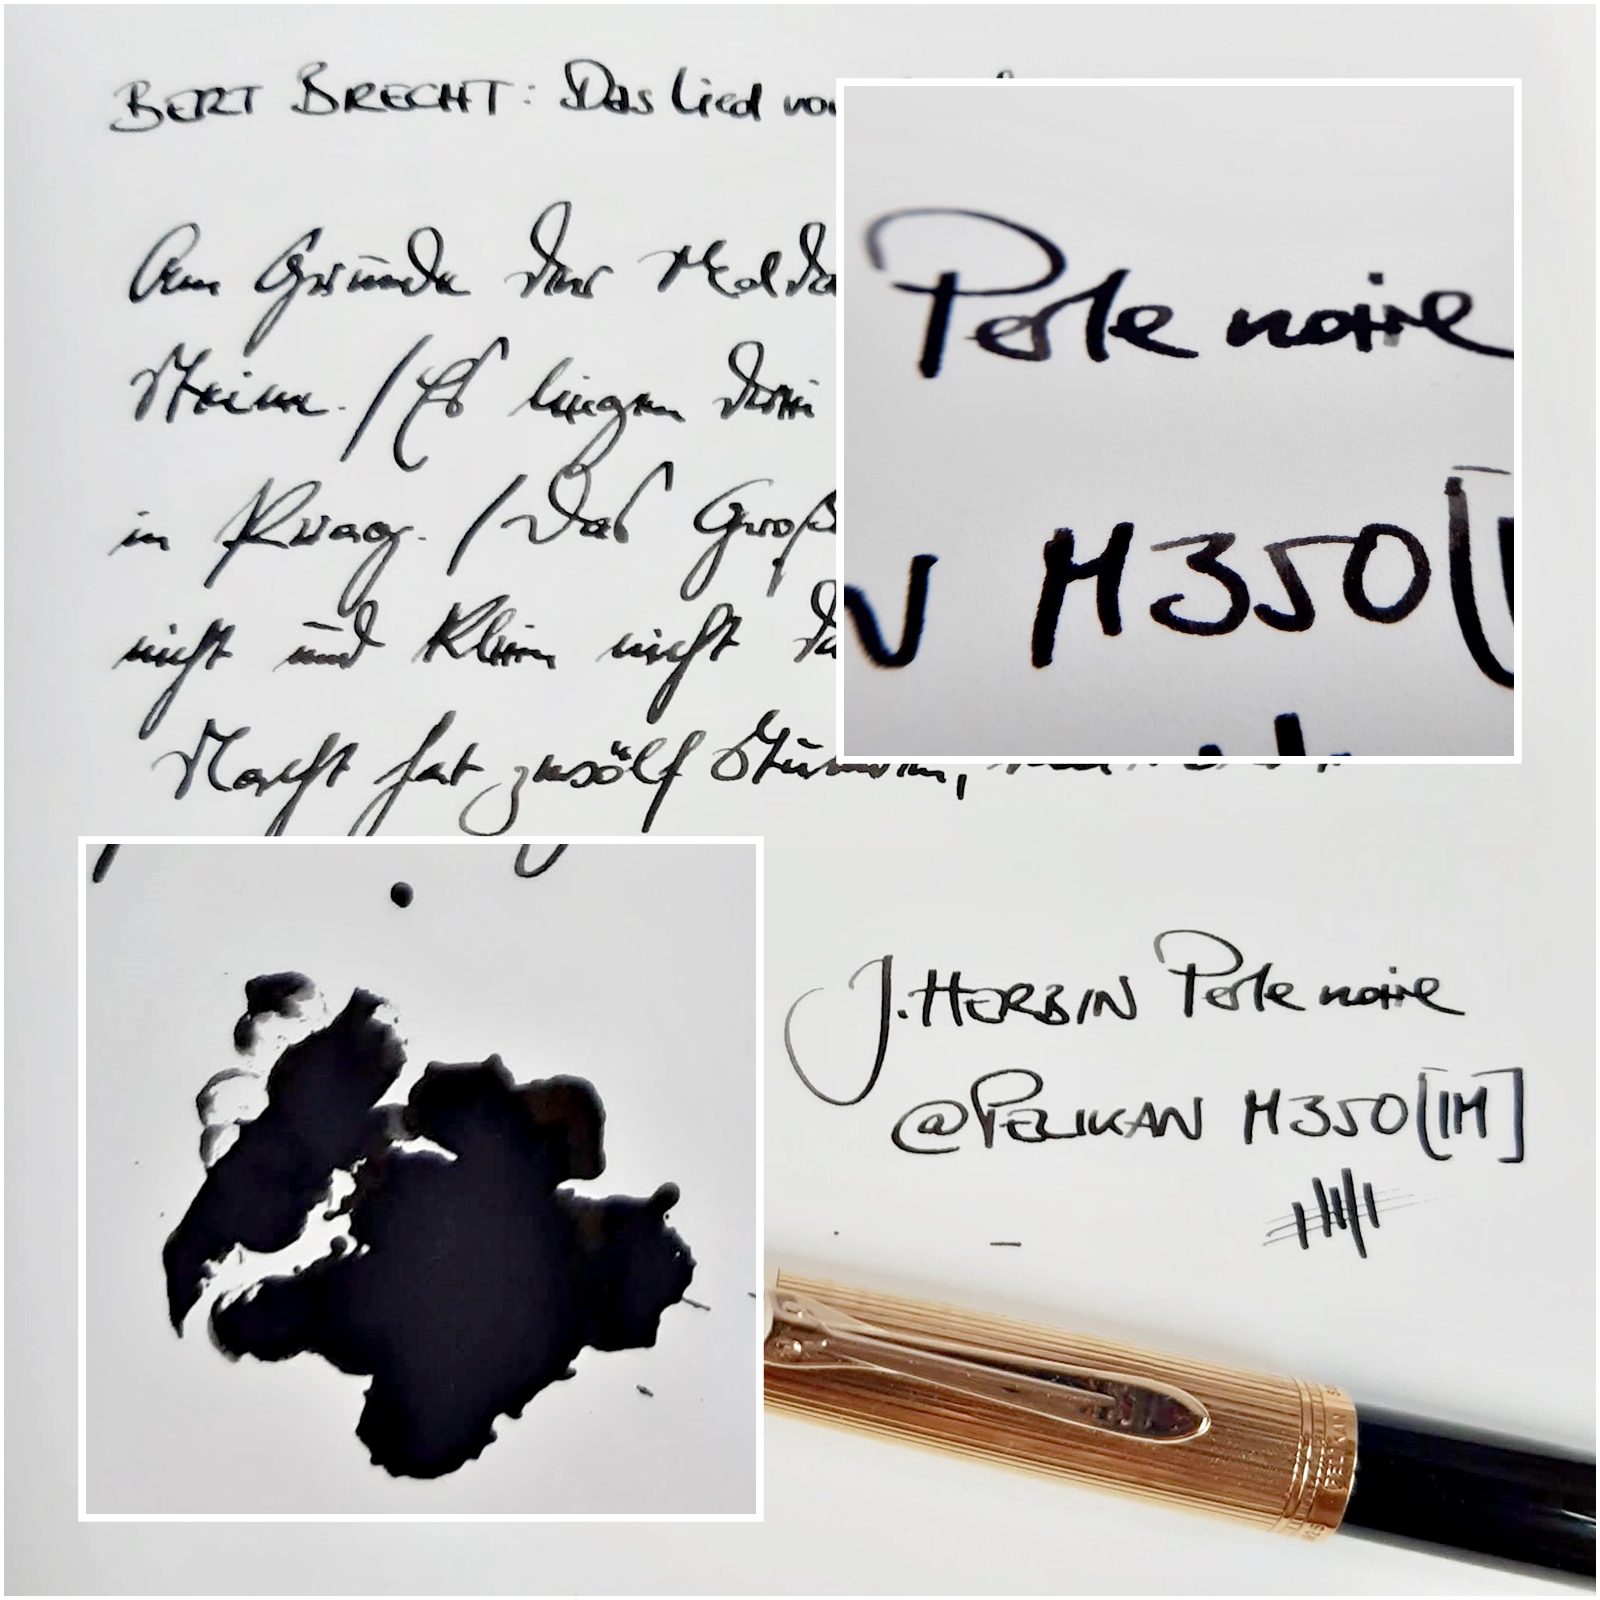 BERT BRECHT: Das Lied von
Am Grunde der Molda
Steine. / Es liegen drei
in Prag. / Das Große
nicht und Klein nicht
Nacht hat zwölf Stunden,
Perle noire
N M350[I
J. HERBIN Perle noire
@PELIKAN M350[IM]
PELIKAN